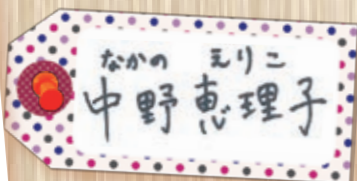 なかの えりこ
中野恵理子